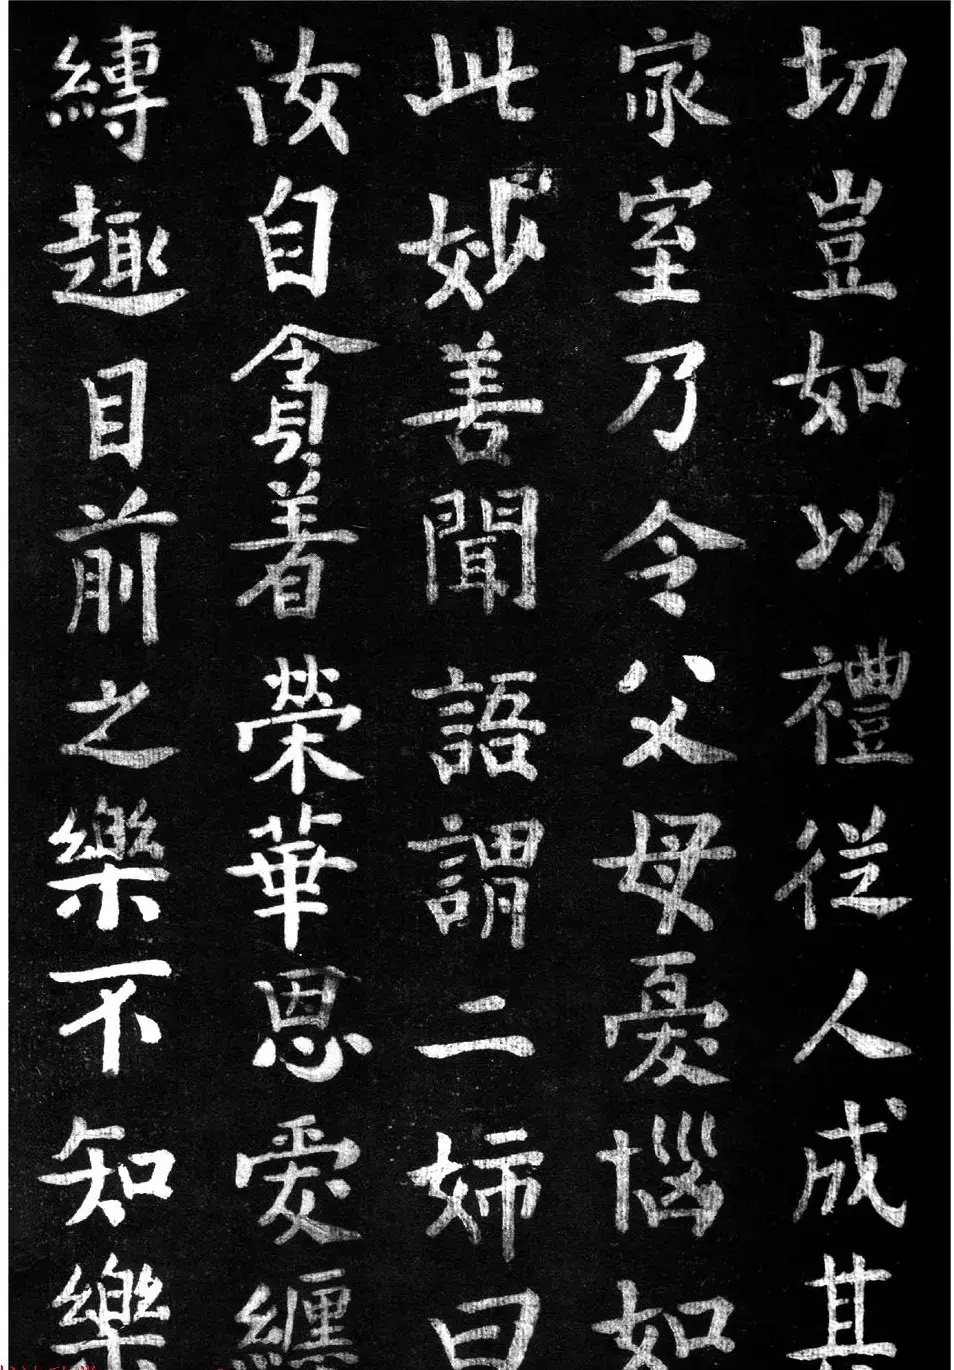 切豈如以禮從人成其
家室乃令父母憂惱如
此妙善聞語謂二婦曰
汝自貪着榮華恩愛纏
縛趣目前之樂不知樂